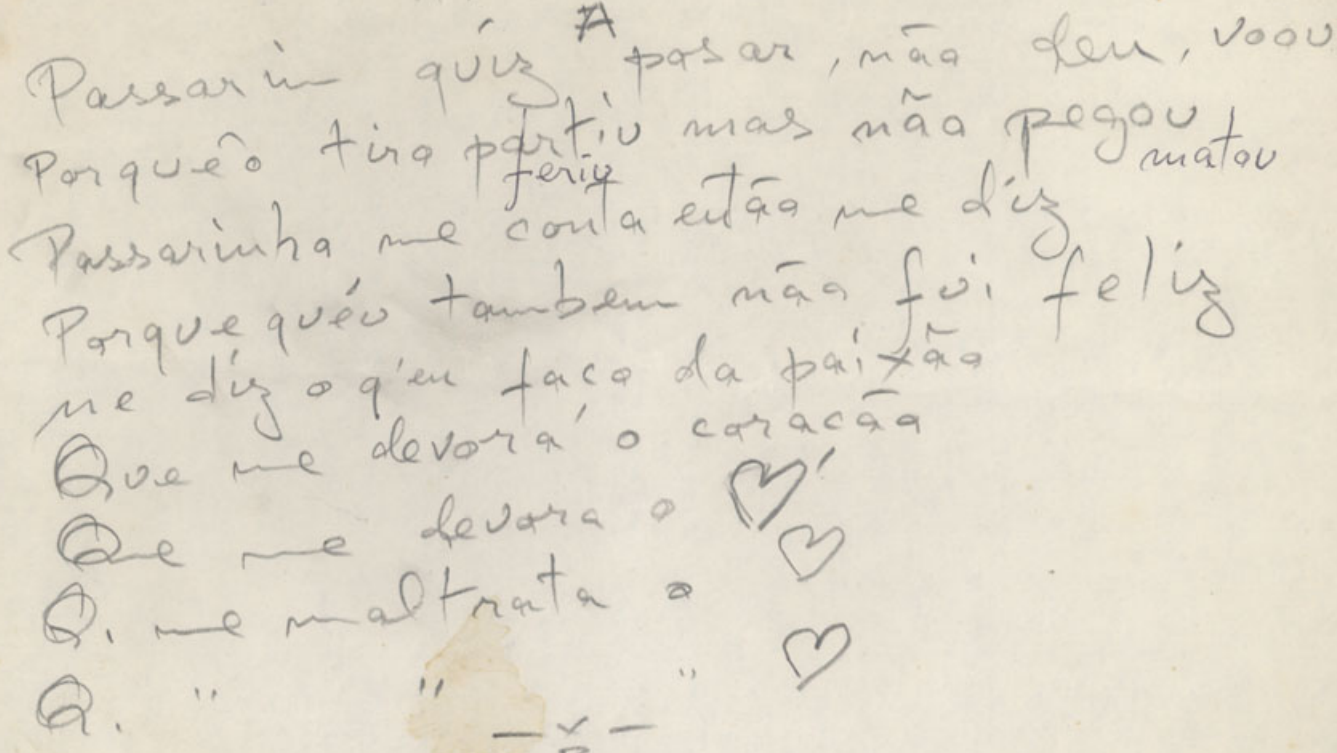 A
Passarin quiz posar, não deu, voou
Porquê o tiro partiu mas não pegou
feriu matou
Passarinho me conta então me diz
Porque quéu tambem não fui feliz
me diz o q'eu faço da paixão
Que me devora o coração
Que me devora o ♡
Q. me maltrata o ♡
Q. " " " ♡